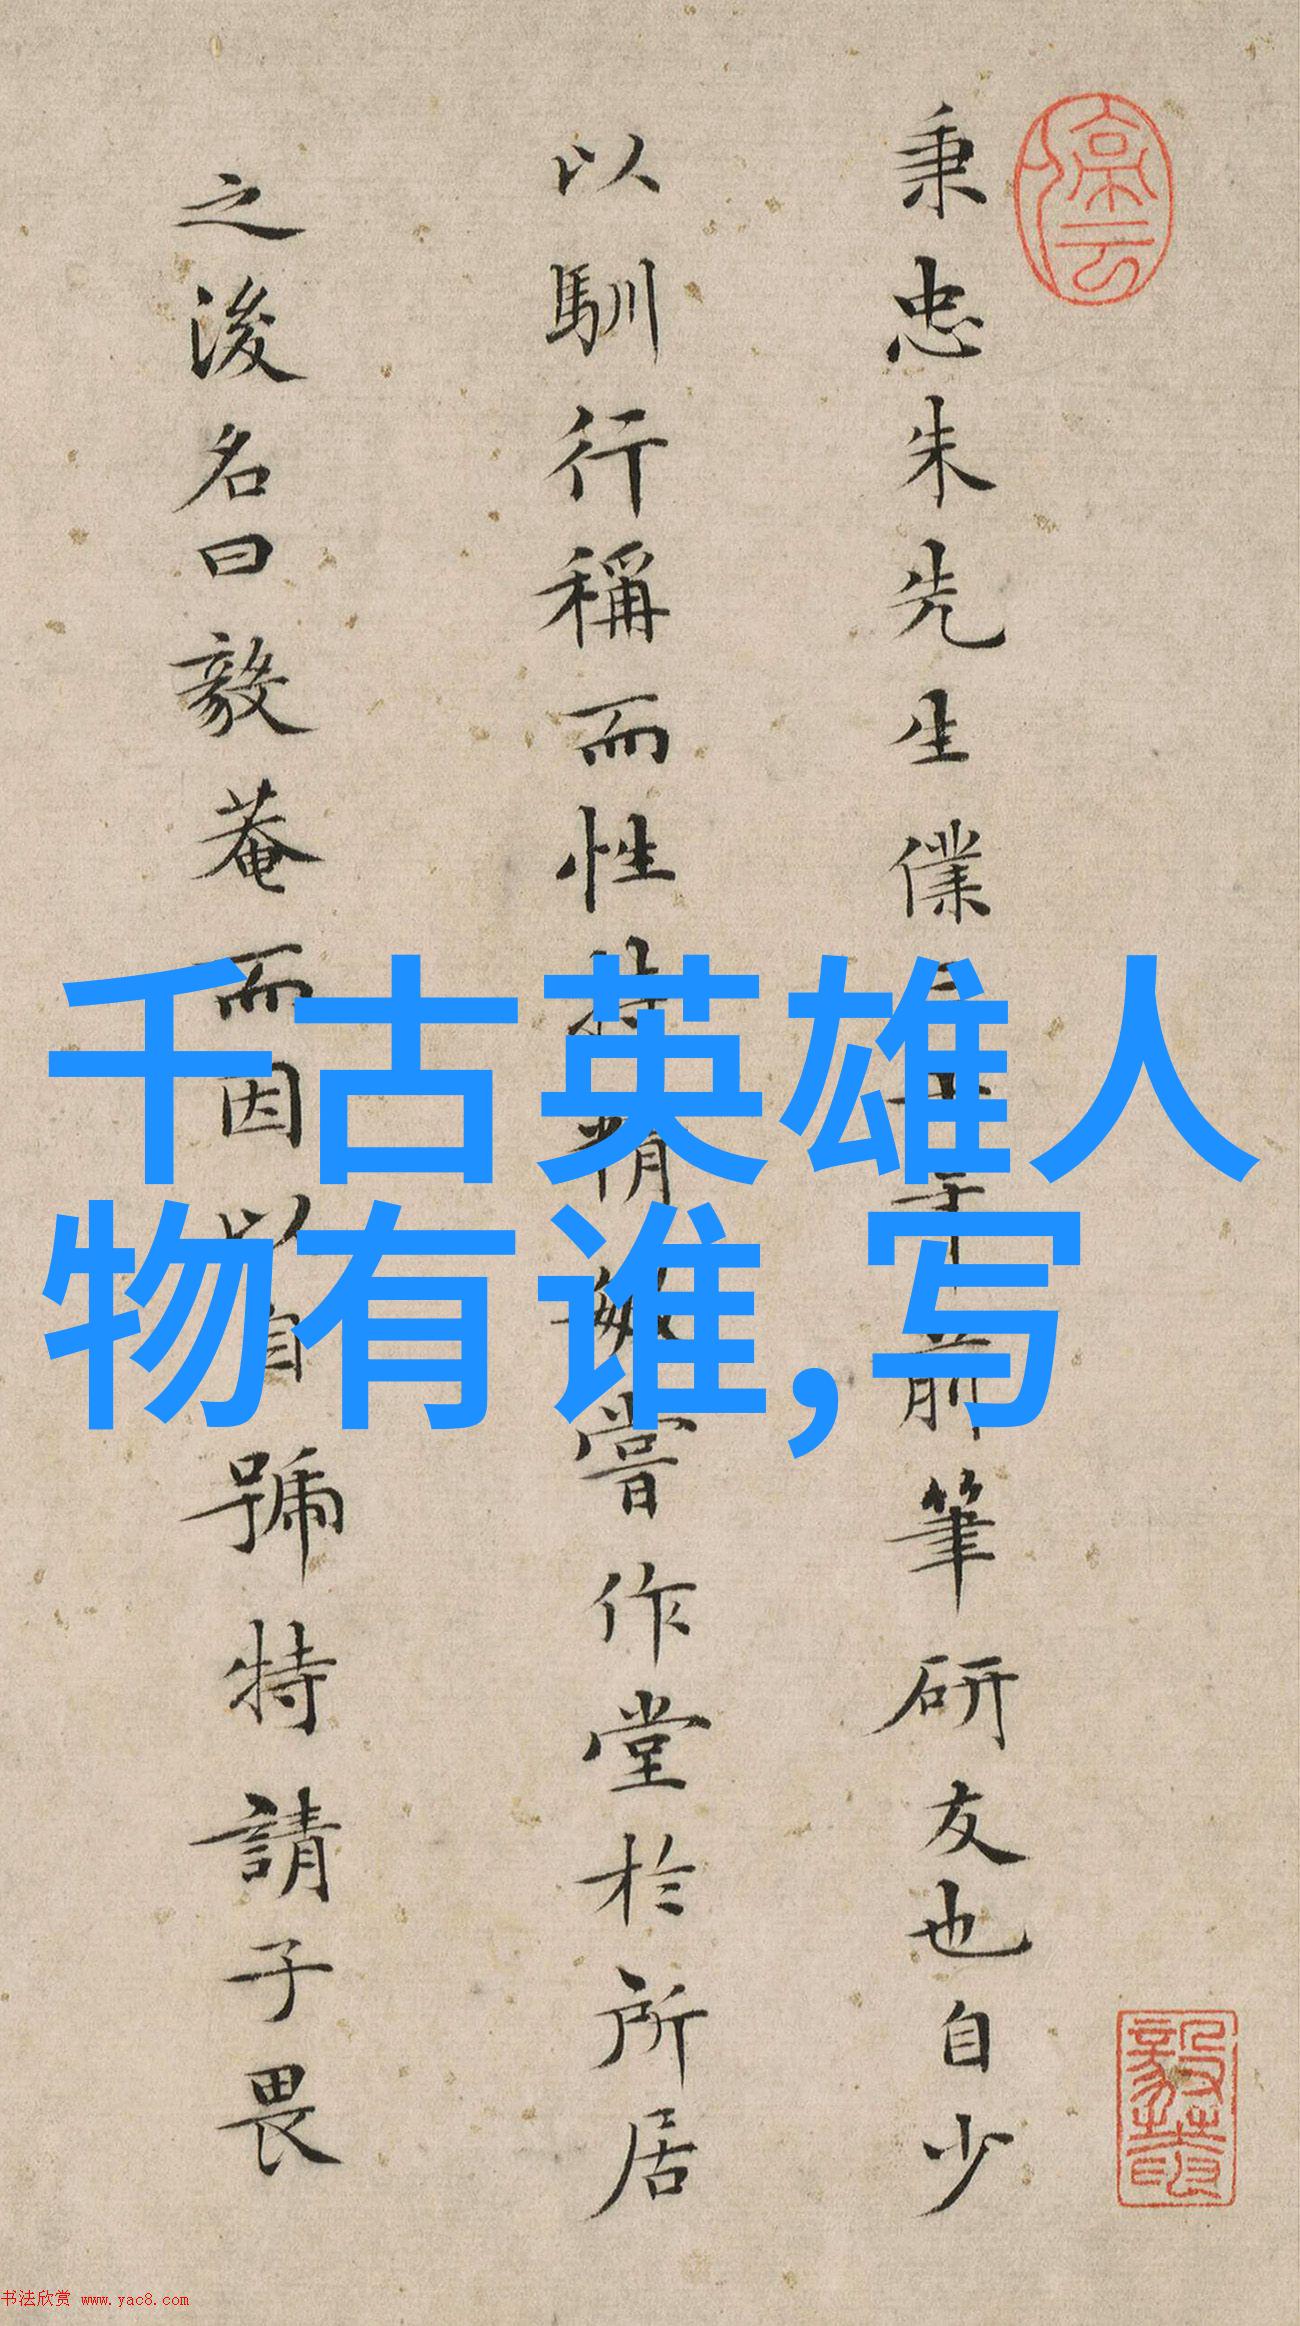 秉忠朱先生僕三十年前筆研友也自少
以馴行稱而性特精敏嘗作堂於所居
之後名曰毅菴而因以自號特請子畏
千古英雄人
物有谁,写
书法欣赏 www.yac8.com